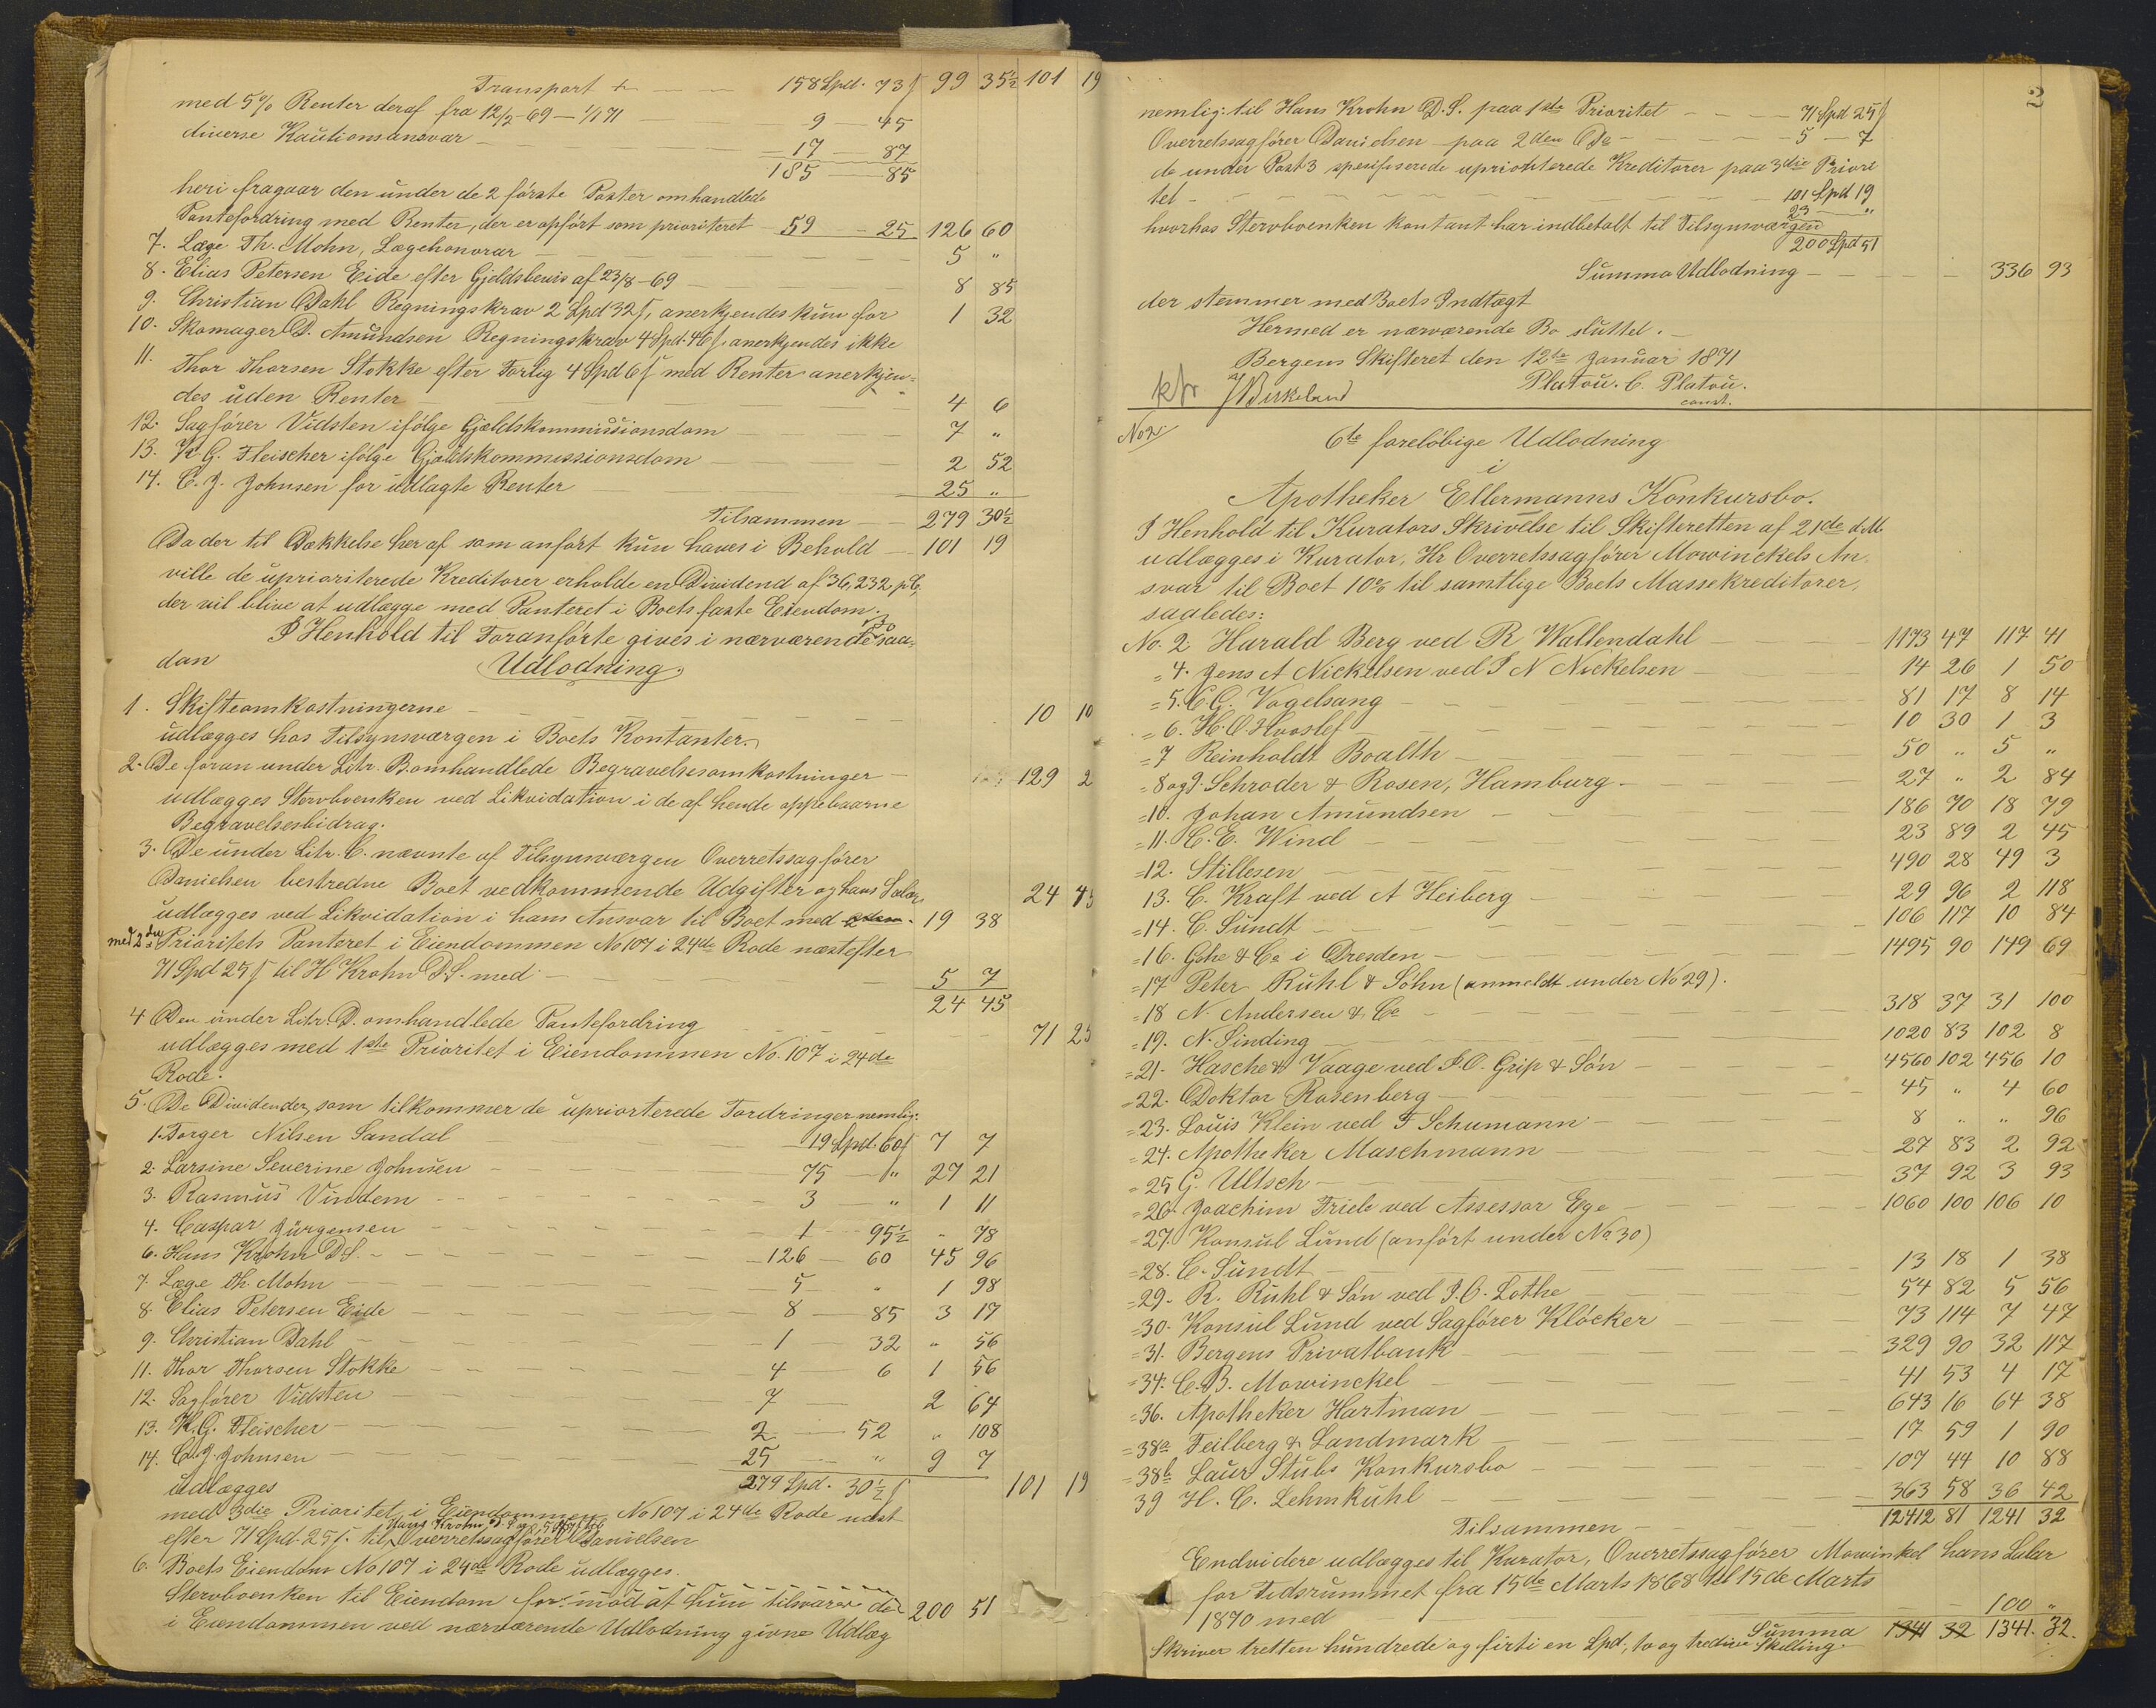 Transport + 158 Spd. 73 ſ 99 35½ 101 19
med 5% Renter deraf fra 12/2-69 - 1/1 71 9 - 45
diverse Kautionsansvar 17 - 87
185 - 85
heri fragaar den under de 2 første Poster omhandlede
Pantefordring med Renter, der er opført som prioriteret 59 - 25 126 60
7. Læge Th. Mohn, Lægehonorar 5 "
8. Elias Petersen Eide efter Gjeldsbevis af 23/8-69 8 85
9. Christian Dahl Regningskrav 2 Spd 32 ſ, anerkjendes kun for 1 32
10. Skomager D. Amundsen Regningskrav 4 Spd. 46 ſ. anerkjendes ikke
11. Thor Thorsen Stokke efter Forlig 4 Spd 6 ſ med Renter anerkjen=
des uden Renter 4 6
12. Sagfører Vidsten ifølge Gjældskommissionsdom 7 "
13. K. G. Fleischer ifølge Gjældskommissionsdom 2 52
14. C. J. Johnsen for udlagte Renter 25 "
Tilsammen 279 30½
Da der til Dækkelse heraf som anført kun haves i Behold 101 19
ville de uprioriterede Kreditorer erholde en Dividend af 36,232 pC,
der vil blive at udlægge med Panteret i Boets faste Eiendom.
I Henhold til Foranførte gives i nærværende Bo saa=
dan Udlodning.
1. Skifteomkostningerne 10 10
udlægges hos Tilsynsværgen i Boets Kontanter.
2. De foran under Litr. B. omhandlede Begravelsesomkostninger 129 2
udlægges Stervboenken ved Likvidation i de af hende oppebaarne
Begravelsesbidrag.
3. De under Litr. C. nævnte af Tilsynsværgen Overretssagfører
Danielsen bestredne Boet vedkommende Udgifter og hans Salær 24 45
udlægges ved Likvidation i hans Ansvar til Boet med 19 38
med 2den Prioritets Panteret i Eiendommen No 107 i 24de Rode næstefter
71 Spd 25 ſ til H Krohn D.S. med 5 7
24 45
4 Den under Litr. D. omhandlede Pantefordring 71 25
udlægges med 1ste Prioritet i Eiendommen No. 107 i 24de
Rode.
5. De Dividender, som tilkommer de upriorterede Fordringer nemlig:
1. Torger Nilsen Sandal 19 Spd. 60 ſ 7 7
2. Larsine Severine Johnsen 75 - " 27 21
3. Rasmus Vindem 3 " 1 11
4. Caspar Jürgensen 1 - 95½ " 78
6. Hans Krohn D.S. 126 - 60 45 96
7. Læge Th. Mohn 5 - " 1 98
8. Elias Petersen Eide 8 - 85 3 17
9. Christian Dahl 1 - 32 " 56
11. Thor Thorsen Stokke 4 6 1 56
12. Sagfører Vidsten 7 - 2 64
13. K. G. Fleischer 2 - 52 " 108
14. C. J. Johnsen 25 - " 9 7
udlægges 279 Spd. 30½ ſ 101 19
med 3die Prioritet i Eiendommen No 107 i 24de Rode næst
efter 71 Spd. 25 ſ. til Hans Krohn D.S. og 5 Spd 7 ſ til Overretssagfører Danielsen
6. Boets Eiendom No 107 i 24de Rode udlægges
Stervboenken til Eiendom for: mod at hun tilsvarer de 200 51
i Eiendommen ved nærværende Udlodning givne Udlæg
2
nemlig: til Hans Krohn D.S. paa 1ste Prioritet 71 Spd 25 ſ
Overretssagfører Danielsen paa 2den Do 5 - 7
de under Post 3 spesifiserede uprioriterede Kreditorer paa 3die Priori
tet 101 Spd 19
23 "
hvorhos Stervboenken kontant har indbetalt til Tilsynsværgen
200 Spd 51
Summa Udlodning 336 93
der stemmer med Boets Indtægt
Hermed er nærværende Bo sluttet.
Bergens Skifteret den 12te Januar 1871
Platou. C. Platou.
const.
kfr JBirkeland
No 2.
6te foreløbige Udlodning
i
Apotheker Ellermanns Konkursbo.
I Henhold til Kurators Skrivelse til Skifteretten af 21de d.M.
udlægges i Kurator, Hr Overretssagfører Mowinckels An=
svar til Boet 10% til samtlige Boets Massekreditorer,
saaledes:
No. 2 Harald Berg ved R Wallendahl 1173 47 117 41
= 4. Jens A Nickelsen ved I N Nickelsen 14 26 1 50
= 5. C. C. Vogelsang 81 17 8 14
= 6. H. O Hvoslef 10 30 1 3
= 7 Reinholdt Boalth 50 " 5 "
= 8 og 9. Schroder & Rosen, Hamburg 27 " 2 84
= 10. Johan Amundsen 186 70 18 79
= 11. C. E. Wind 23 89 2 45
= 12. Stillesen 490 28 49 3
13. C. Kraft ved A Heiberg 29 96 2 118
= 14. C. Sundt 106 117 10 84
= 16. Gehe & Co i Dresden 1495 90 149 69
= 17 Peter Rühl & Sohn (anmeldt under No 29).
= 18 N. Andersen & Co 318 37 31 100
= 19. N. Sinding 1020 83 102 8
= 21. Hasche & Vaage ved I. O. Grip & Søn 4560 102 456 10
= 22. Doktor Rosenberg 45 " 4 60
= 23. Louis Klein ved F Schumann 8 " " 96
= 24. Apotheker Maschmann 27 83 2 92
= 25 G. Ultsch 37 92 3 93
= 26. Joachim Friele ved Assessor Ege 1060 100 106 10
= 27. Konsul Lund (anført under No 30)
= 28. C. Sundt 13 18 1 38
= 29. R. Rühl & Søn ved I. O. Lothe 54 82 5 56
= 30. Konsul Lund ved Sagfører Kløcker 73 114 7 47
= 31. Bergens Privatbank 329 90 32 117
= 34. C. B. Mowinckel 41 53 4 17
= 36. Apotheker Hartman 643 16 64 38
= 38a Feilberg & Landmark 17 59 1 90
= 38b Laur Stubs Konkursbo 107 44 10 88
39 H. C. Lehmkuhl 363 58 36 42
Tilsammen 12412 81 1241 32
Endvidere udlægges til Kurator, Overretssagfører Mowinkel hans Salær
for Tidsrummet fra 15de Marts 1868 til 15de Marts
1870 med 100 "
Summa 1341 32 1341. 32.
Skriver tretten hundrede og firti en Spd, to og tredive Skilling.